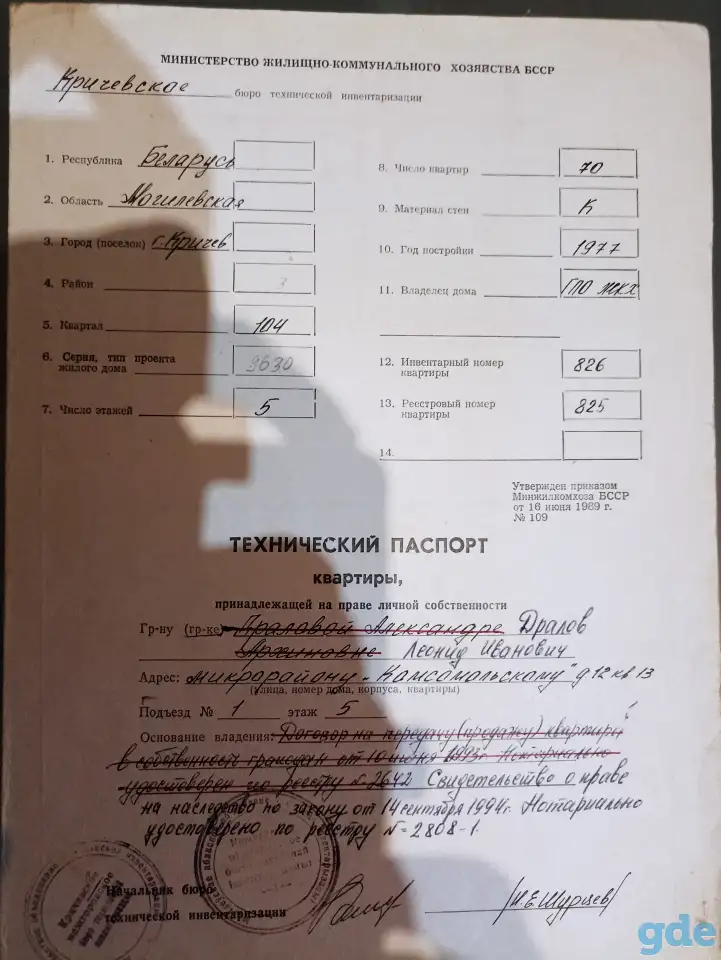 МИНИСТЕРСТВО ЖИЛИЩНО-КОММУНАЛЬНОГО ХОЗЯЙСТВА БССР
Кричевское бюро технической инвентаризации
1. Республика Беларусь
2. Область Могилевская
3. Город (поселок) г. Кричев
4. Район 3
5. Квартал 104
6. Серия, тип проекта
жилого дома 9630
7. Число этажей 5
8. Число квартир 70
9. Материал стен К
10. Год постройки 1977
11. Владелец дома ГПО ЖКХ
12. Инвентарный номер
квартиры 826
13. Реестровый номер
квартиры 825
14.
Утвержден приказом
Минжилкомхоза БССР
от 16 июня 1989 г.
№ 109
ТЕХНИЧЕСКИЙ ПАСПОРТ
квартиры,
принадлежащей на праве личной собственности
Гр-ну (гр-ке) Драловой Александре Дралов
Архиповне Леонид Иванович
Адрес: микрорайону "Камсомольскому" д 12 кв 13
(улица, номер дома, корпуса, квартиры)
Подъезд № 1 этаж 5
Основание владения: Договор на передачу (продажу) квартиры
в собственность граждан от 10 июня 1993г. Нотариально
удостоверен по реестру № 2642 Свидетельство о праве
на наследство по закону от 14 сентября 1994г. Нотариально
удостоверено по реестру № 2808-1.
Начальник бюро
технической инвентаризации
gde